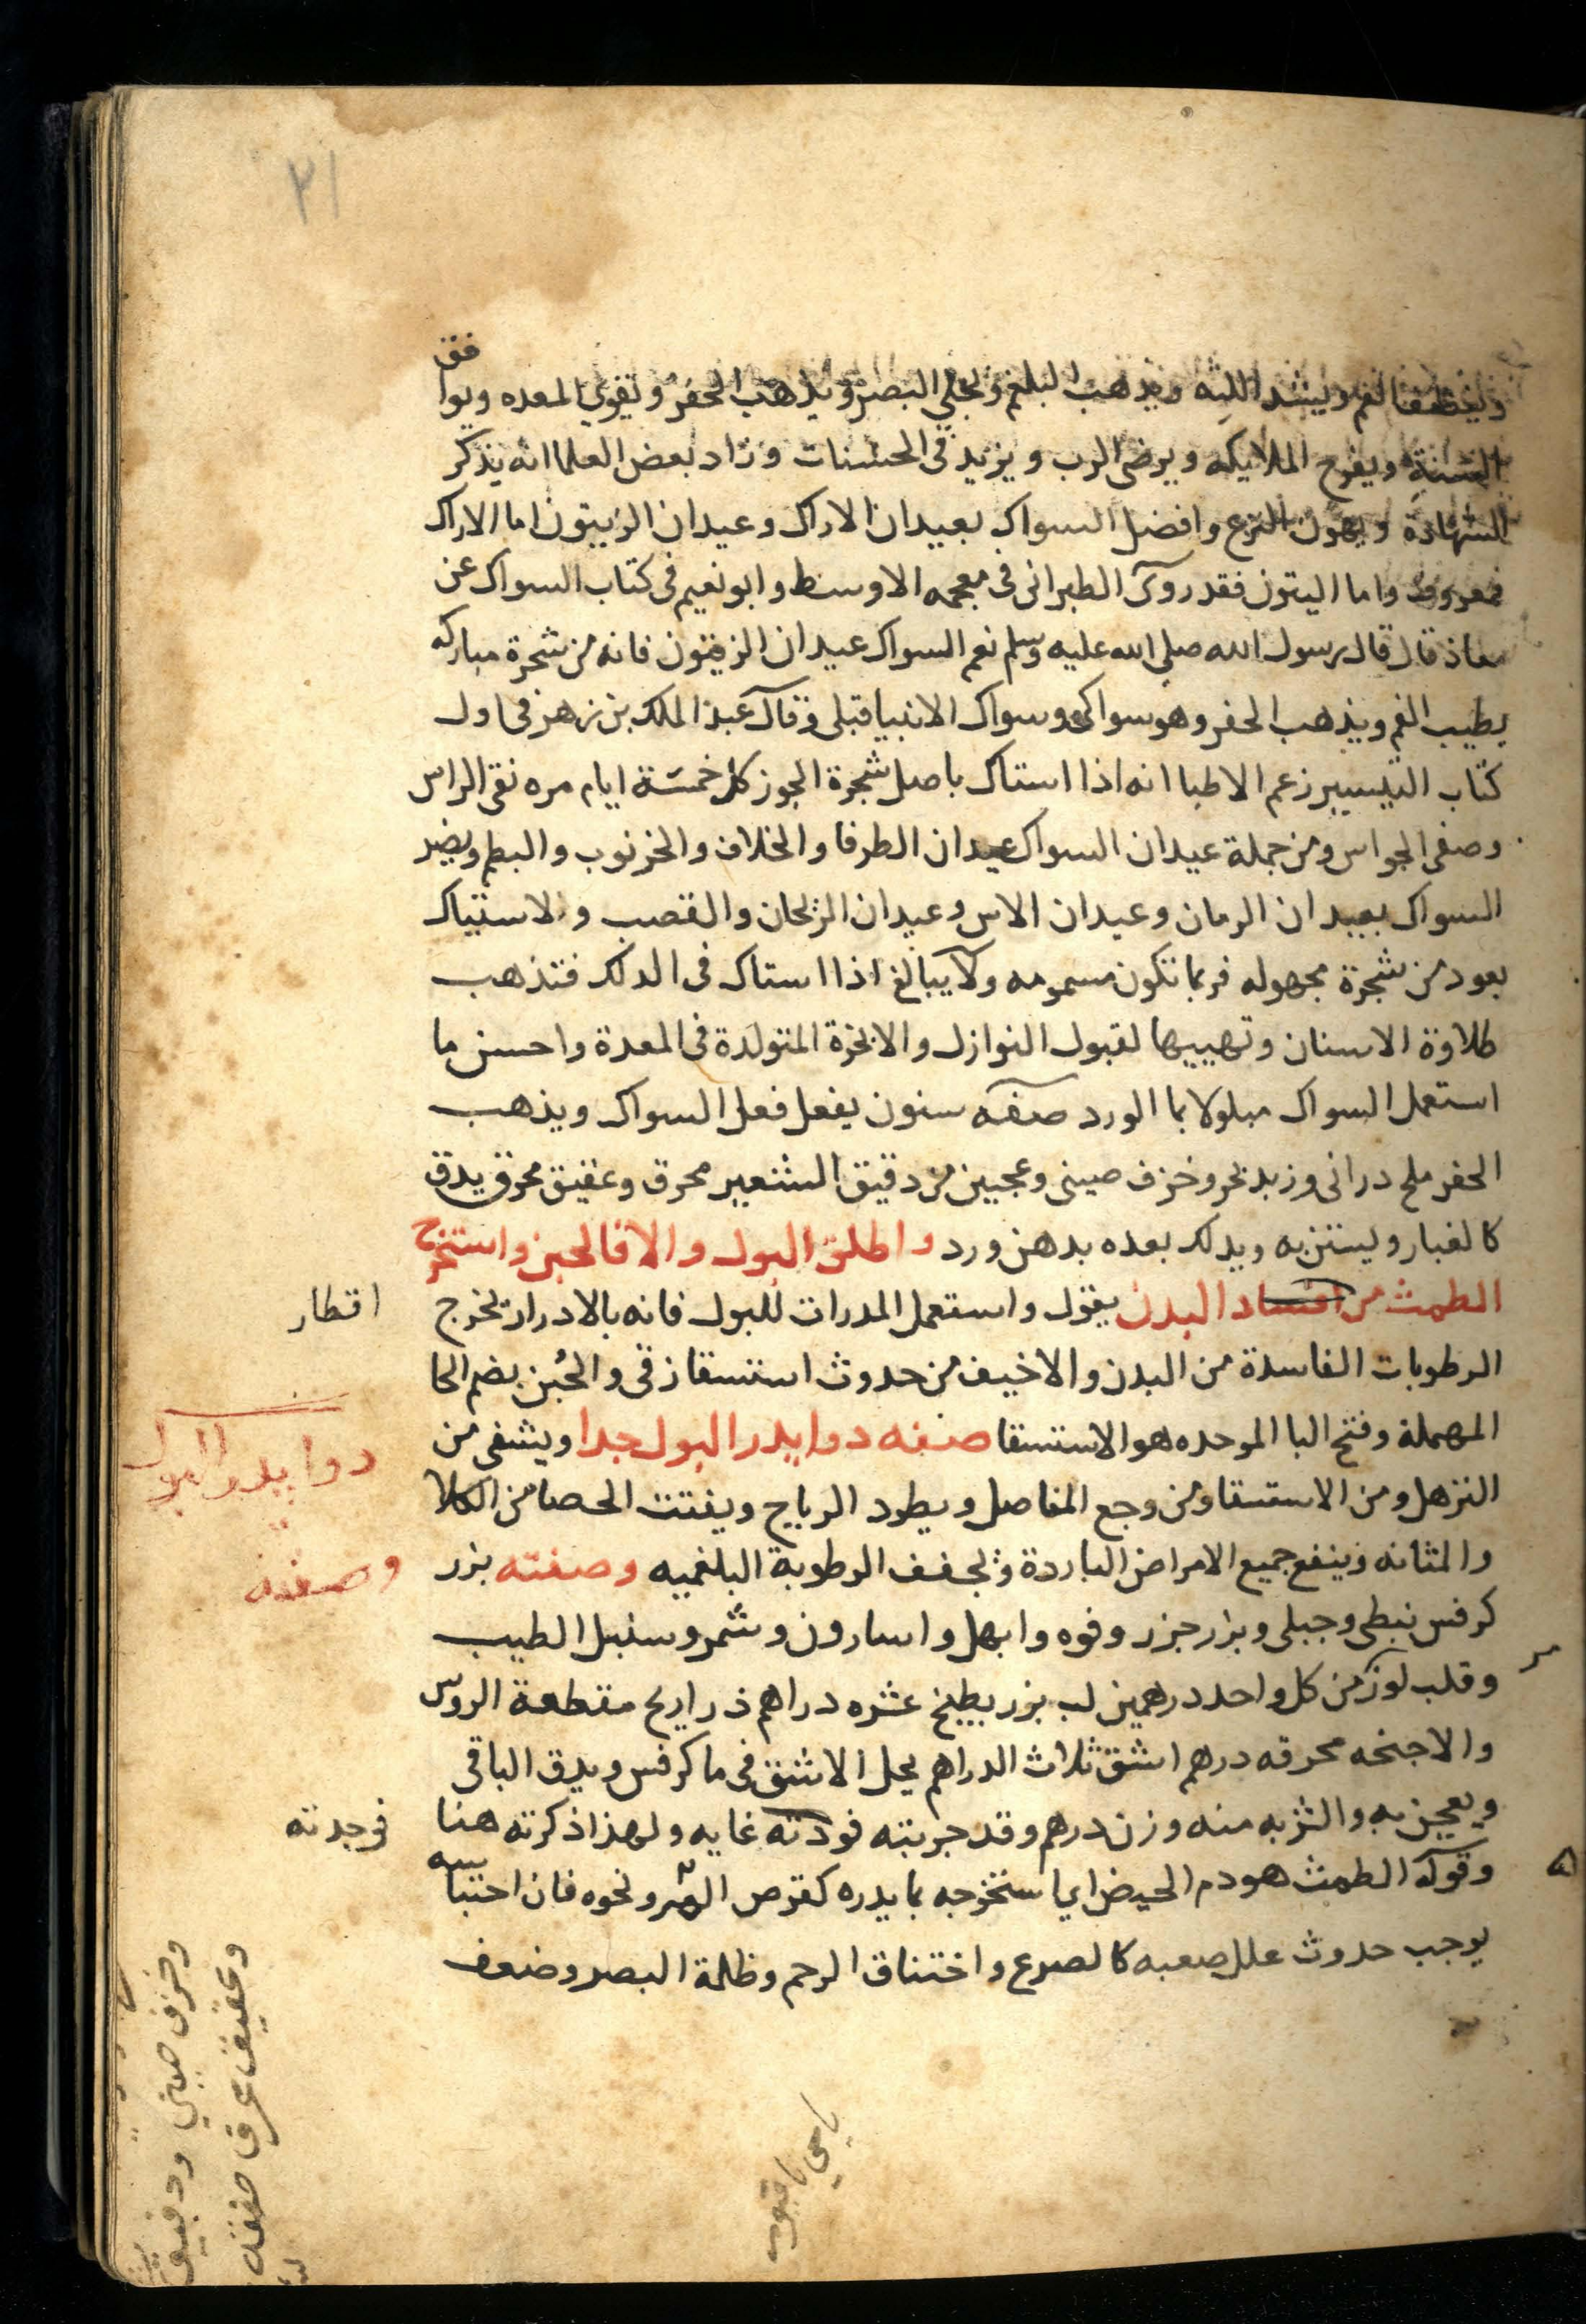 ٢١
وينظف الفم ويشد اللثه ويذهب البلغم ويجلي البصر ويذهب الحفر ويقوي المعده ويوافق
السنة ويفرح الملايكه ويرضى الرب ويزيد في الحسنات وزاد بعض العلما انه يذكر
الشهادة ويهون النزع وافضل السواك بعيدان الاراك وعيدان الزيتون اما الاراك
فمعروف واما اليتون فقد روى الطبرانى فى معجمه الاوسط وابو نعيم فى كتاب السواك عن
معاذ قال قال رسول الله صلى الله عليه وسلم نعم السواك عيدان الزيتون فانه من شجرة مباركه
يطيب الفم ويذهب الحفر وهو سواكى وسواك الانبيا قبلى وقال عبد الملك بن زهر فى اول
كتاب التيسيير زعم الاطبا انه اذا استاك باصل شجرة الجوز كل خمسة ايام مره نقى الراس
وصفى الحواس ومن جملة عيدان السواك عيدان الطرفا والخلاف والخرنوب والبطم ويضر
السواك بعيدان الرمان وعيدان الاس وعيدان الريحان والقصب والاستياك
بعود من شجرة مجهوله فربما تكون مسمومه ولا يبالغ اذا استاك فى الدلك فتذهب
طلاوة الاسنان وتهييها لقبول النوازل والابخرة المتولدة فى المعدة واحسن ما
استعمل السواك مبلولا بما الورد صفه سنون يفعل فعل السواك ويذهب
الحفر ملح درانى وزبد بحر وخزف صينى وعجين من دقيق الشعير محرق وعقيق محرق يدق
كالغبار ويستن به ويدلك بعده بدهن ورد واطلق البول والا فالحبن واستخرج
الطمث من افساد البدن يقول واستعمل المدرات للبول فانه بالادرار يخرج
اقطار
الرطوبات الفاسدة من البدن والا خيف من حدوث استسقا زقى والحُبن بضم الحا
المهملة وفتح البا الموحده هو الاستسقا صفه دوا يدر البول جدا ويشفى من
دوا يدر البول
التزهل ومن الاستسقا ومن وجع المفاصل ويطرد الرياح ويفتت الحصا من الكلا
والمثانه وينفع جميع الامراض الباردة ويجفف الرطوبة البلغميه وصفته بزر
وصفته
كرفس نبطى وجبلى وبزر جزر وفوه وابهل واسارون وشمر وسنبل الطيب
وقلب لوز من كل واحد درهمين لب بزر بطيخ عشره دراهم ذراريح مقطعة الروس
والاجنحه محرقه درهم اشق ثلاث الدراهم يحل الاشق فى ما كرفس ويدق الباقى
ويعجن به والشربه منه وزن درهم وقد جربته فودته غايه ولهذا ذكرته هنا
فوجدته
وقوله الطمث هو دم الحيض اي استخرجه بما يدره كقرص المر ونحوه فان احتباسه
يوجب حدوث علل صعبه كالصرع واختناق الرحم وظلمة البصر وضعف
وخزف صيني ودقيق
وعقيق محرق صفته